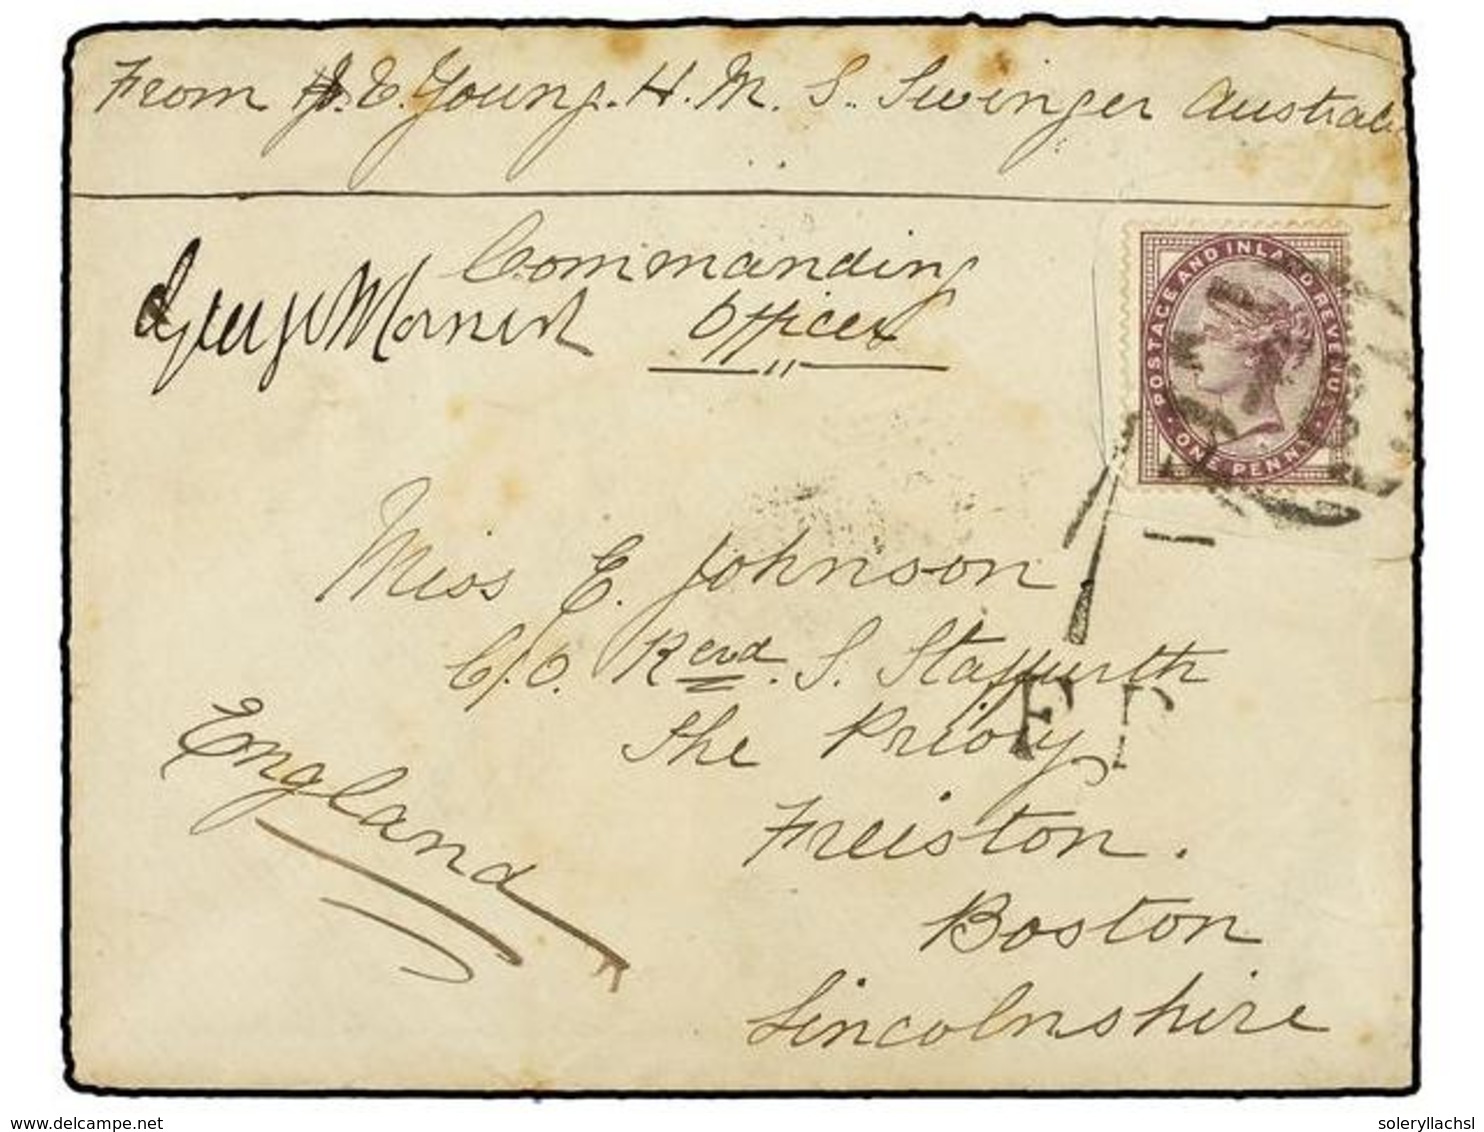 From J. E. Young. H. M. S. Swinger Austral
Commanding
Officer
George
POSTAGE AND INLAND REVENUE
ONE PENNY
Miss E. Johnson
C/o. Revd. S. Staffurth
The Priory
Freiston.
Boston
Lincolnshire
England
delcampe.net
soleryllachsl